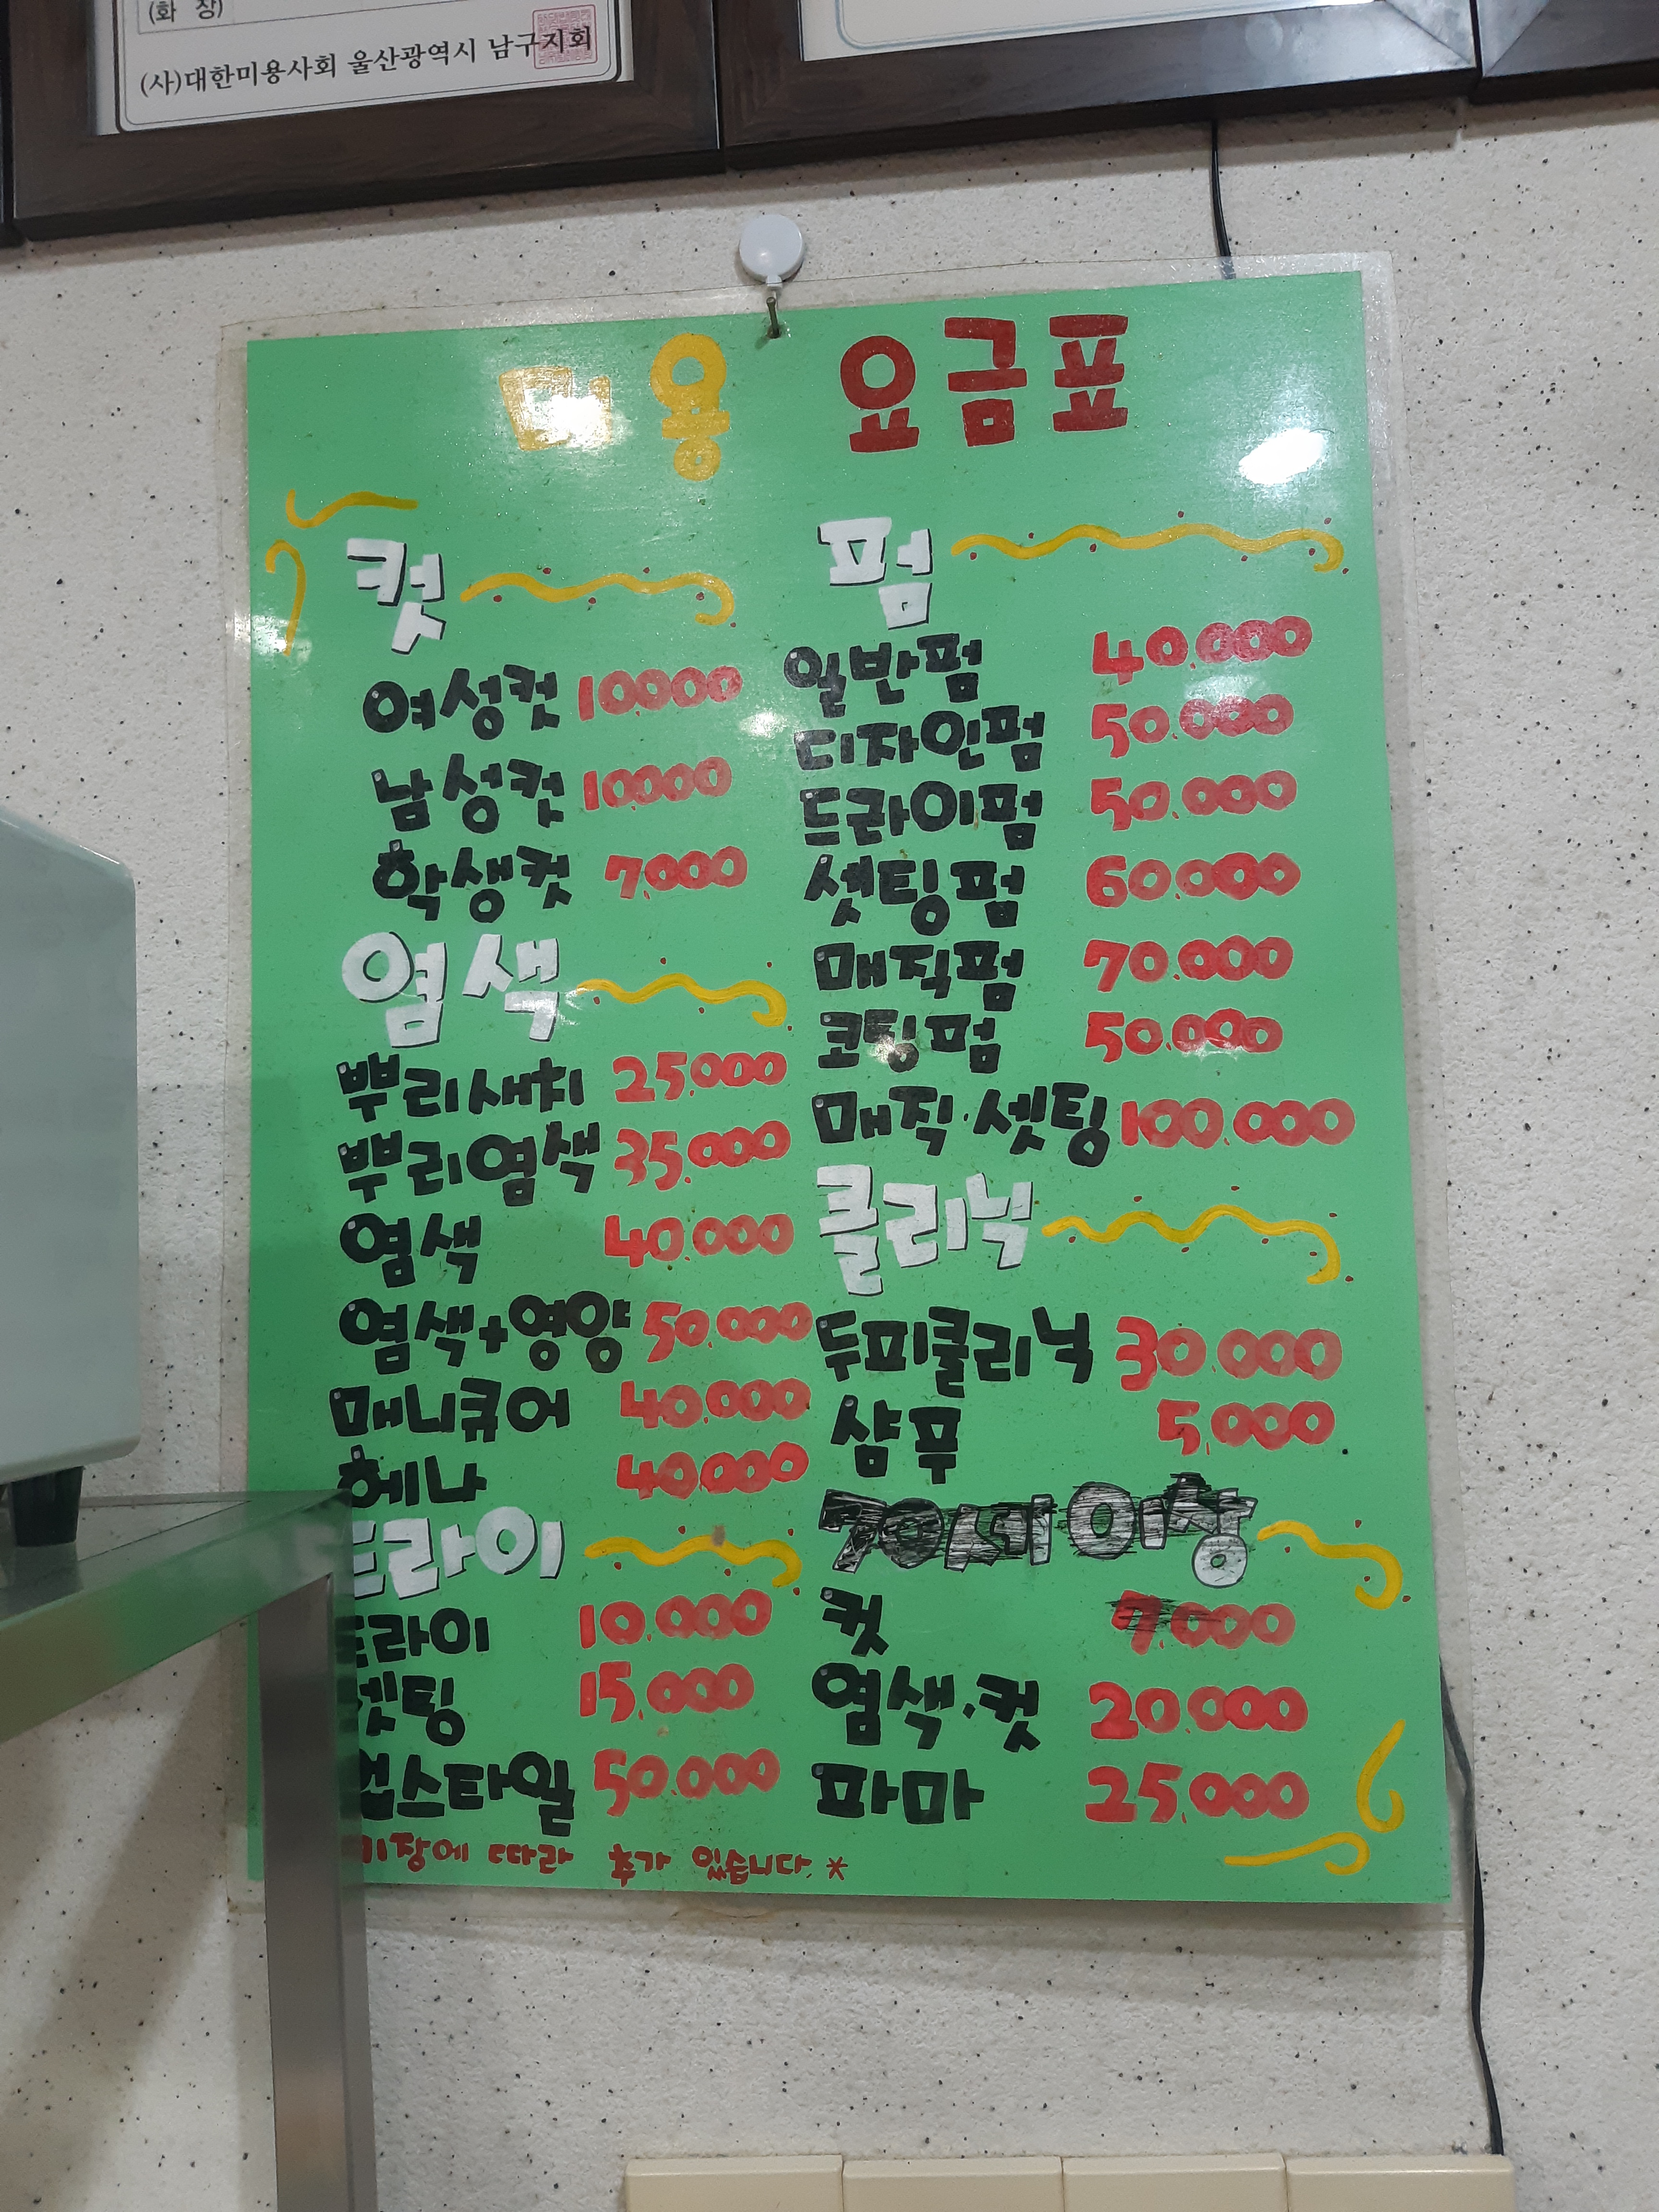 (화 장)
(사)대한미용사회 울산광역시 남구지회
미용 요금표
컷
여성컷 10.000
남성컷 10.000
학생컷 7.000
염색
뿌리새치 25.000
뿌리염색 35.000
염색 40.000
염색+영양 50.000
매니큐어 40.000
헤나 40.000
드라이
드라이 10.000
셋팅 15.000
업스타일 50.000
기장에 따라 추가 있습니다.*
펌
일반펌 40.000
디자인펌 50.000
드라이펌 50.000
셋팅펌 60.000
매직펌 70.000
코팅펌 50.000
매직.셋팅 100.000
클리닉
두피쿨리닉 30.000
샴푸 5,000
70세이상
컷 7.000
염색.컷 20.000
파마 25.000